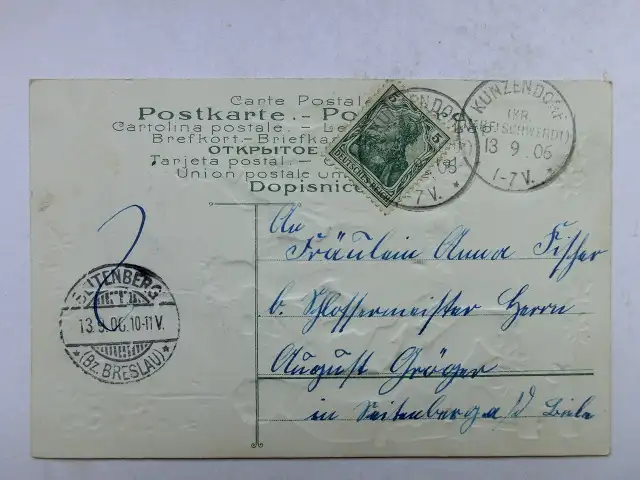 Carte Postale
Postkarte. - Po
Cartolina postale. - Le
Brefkort - Briefkar
ОТКРЫТОЕ
Tarjeta postal. - C
Union postale un
Dopisnice
5
5
DEUTSCHES REICH
KUNZENDORF
06
-7 V. *
KUNZENDORF
(KR. HABELSCHWERDT)
13 9. 06
7-7 V. *
SEITENBERG
13.9.06.10-11 V.
* (Bz. BRESLAU) *
An
Fräulein Anna Fischer
b. Schlossermeister Herrn
August Gröger
in Seitenberg a/d Biele